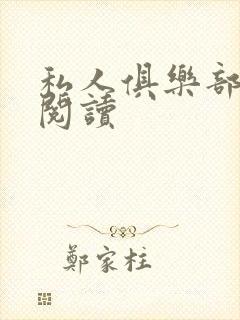 私人俱樂部
閱讀
鄭家柱